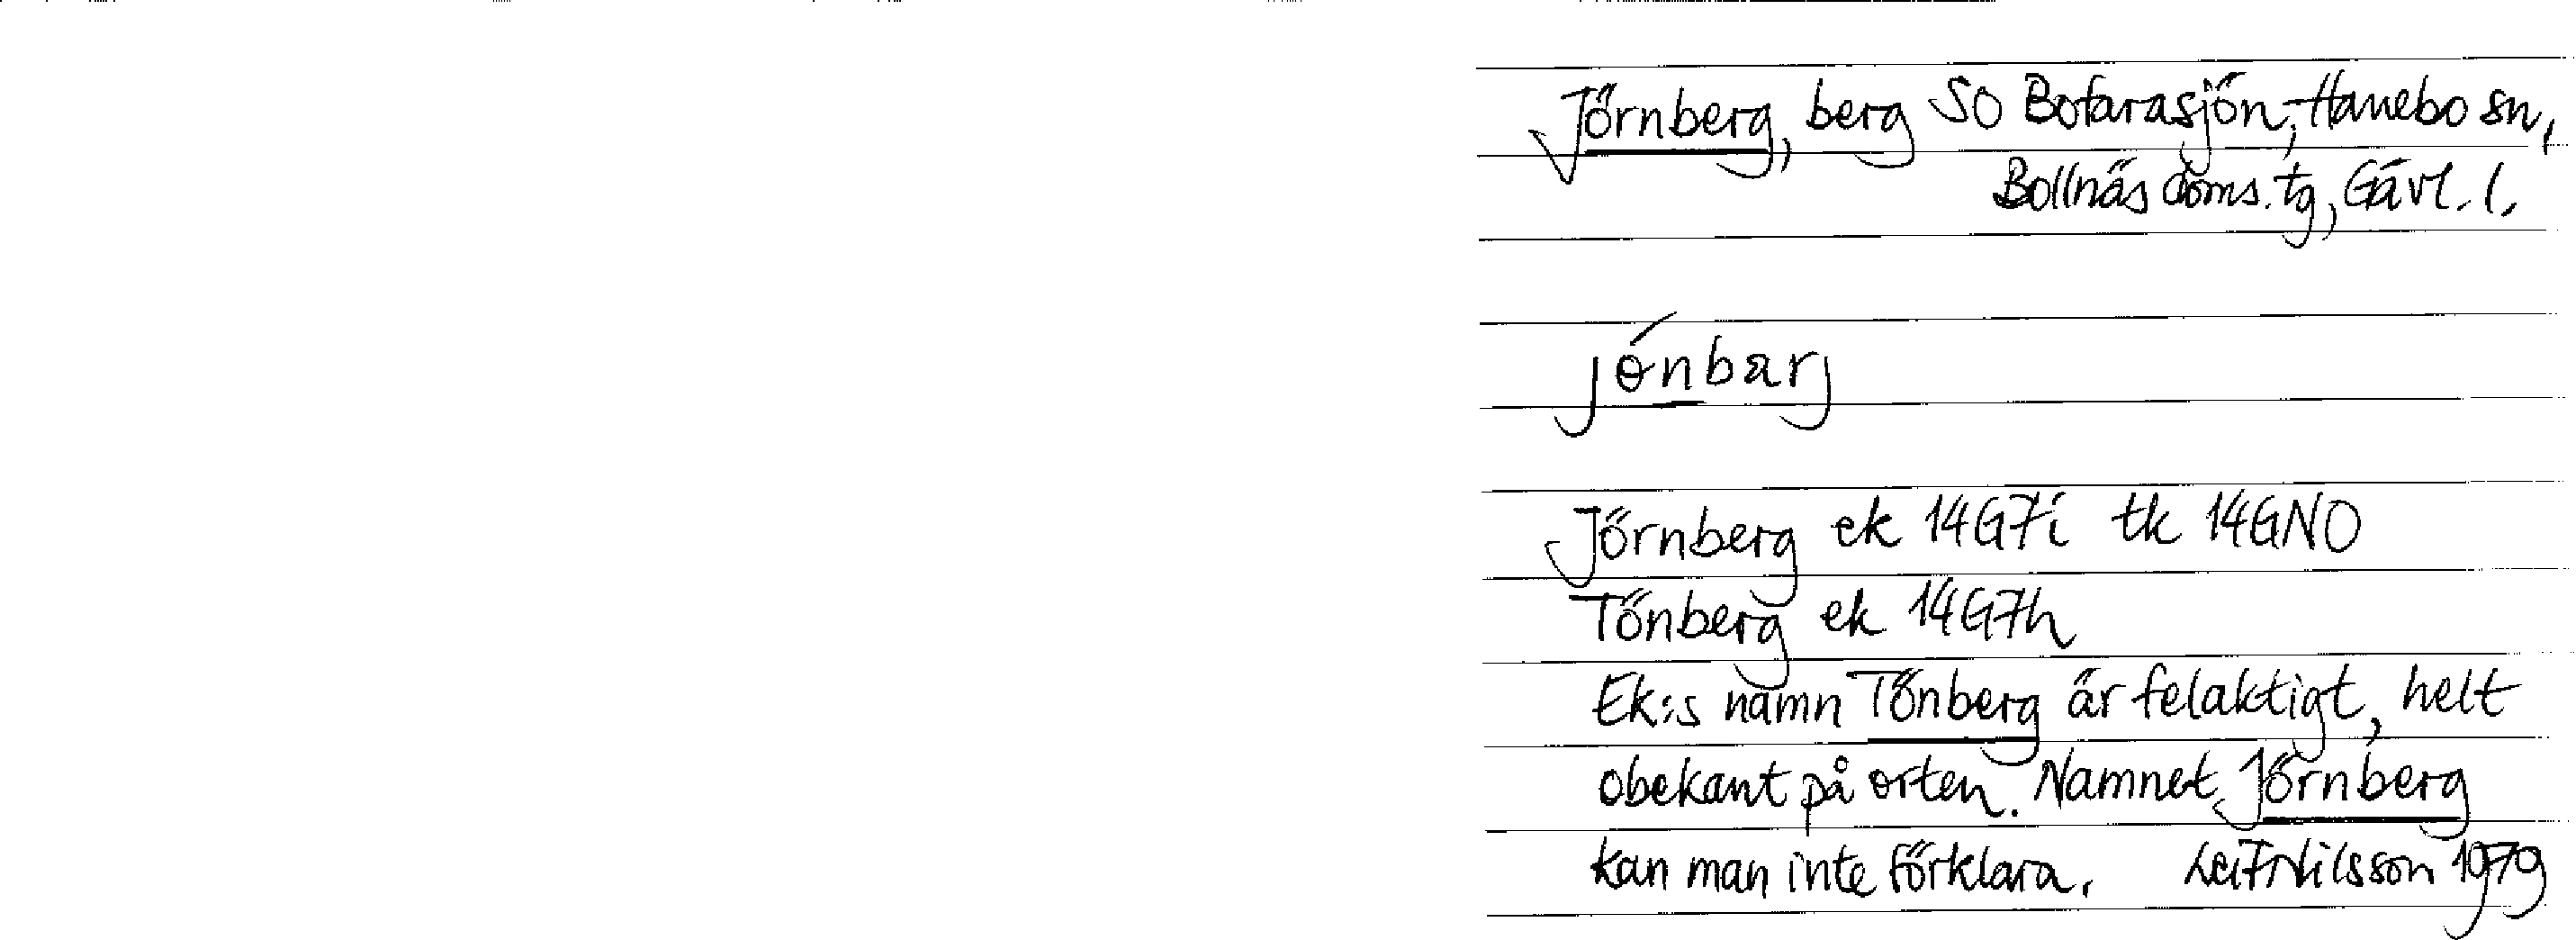 Jörnberg, berg SO Bofarasjön, Hanebo sn,
Bollnäs doms. tg, Gävl. l.
jǿnbærj
Jörnberg ek 14G7i tk 14GNO
Tönberg ek 14G7h
Ek:s namn Tönberg är felaktigt, helt
obekant på orten. Namnet Jörnberg
kan man inte förklara. Leif Nilsson 1979